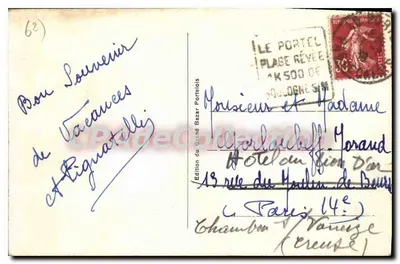 62)
Bon Souvenir
de Vacances
Pignatelli
Edition du Grand Bazar Portelois
LE PORTEL
PLAGE RÊVÉE
A K500 DE
BOULOGNE S/M
30c
Monsieur et Madame
Morand
Hôtel du Lion D'or
13 rue du Moulin de
(Paris 14e)
Chambon s/
(Creuse)